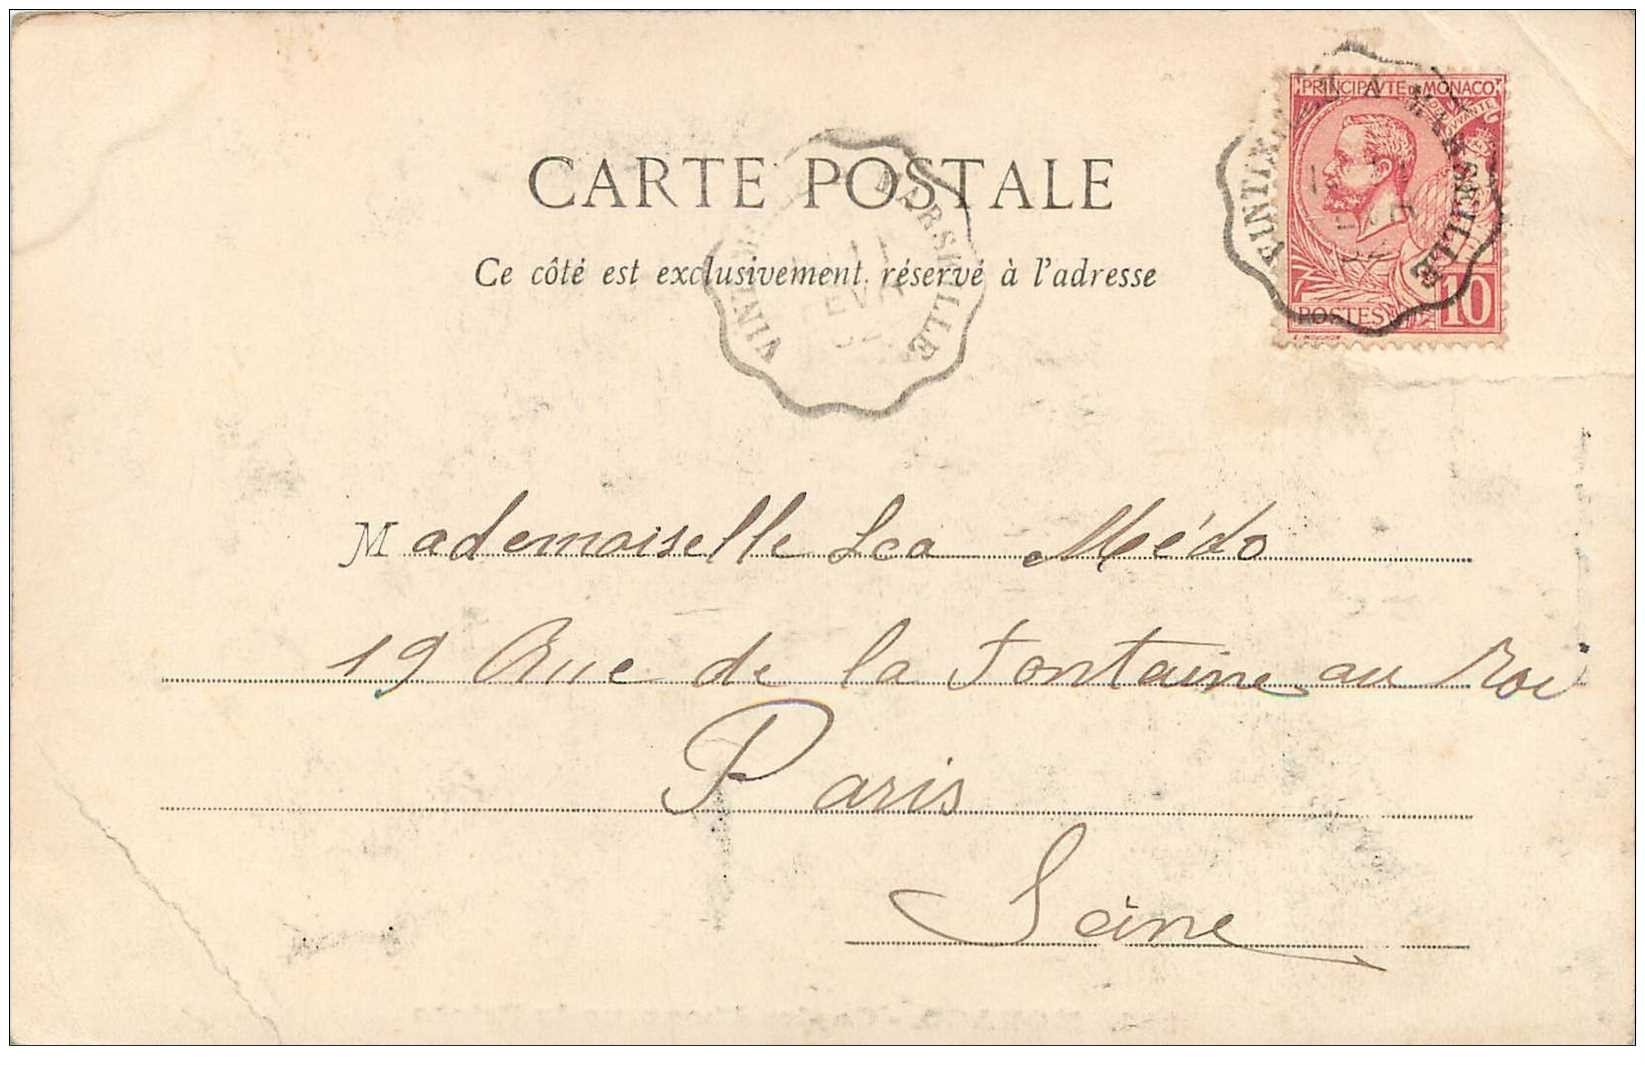 PRINCIPAVTE DE MONACO
CARTE POSTALE
MARSEILLE
MARSEILLE
Ce côté est exclusivement réservé à l'adresse
POSTES 10
Mademoiselle Lea Médo
19 Rue de la Fontaine au Roi
Paris
Seine